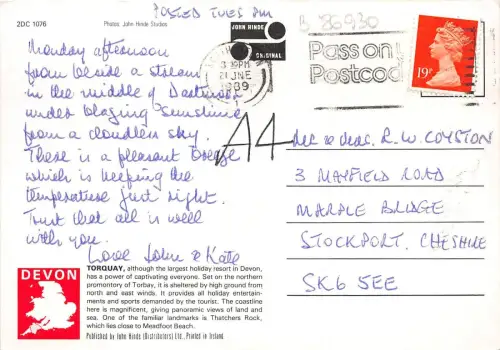 POSTED TUES PM
B 86930
2DC 1076
Photos: John Hinde Studios
JOHN HINDE
ORIGINAL
Monday afternoon
from beside a stream
in the middle of Dartmoor
under blazing sunshine
from a cloudless sky.
There is a pleasant breeze
which is keeping the
temperature just right.
Trust that all is well
with you.
Love John & Kate
PM
JUNE
1989
Pass on
Postcod
19
A4
Mr & Mrs. R.W. COYSTON
3 MAYFIELD ROAD
MARPLE BRIDGE
STOCKPORT, CHESHIRE
SK6 5EE
DEVON
TORQUAY, although the largest holiday resort in Devon,
has a power of captivating everyone. Set on the northern
promontory of Torbay, it is sheltered by high ground from
north and east winds. It provides all holiday entertain-
ments and sports demanded by the tourist. The coastline
here is magnificent, giving panoramic views of land and
sea. One of the familiar landmarks is Thatchers Rock,
which lies close to Meadfoot Beach.
Published by John Hinde (Distributors) Ltd., Printed in Ireland.